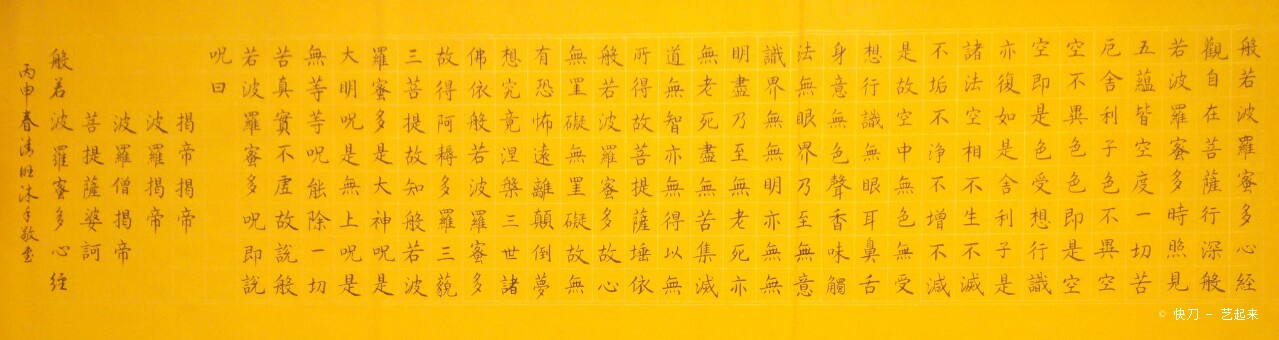 般若波羅蜜多心經
觀自在菩薩行深般
若波羅蜜多時照見
五蘊皆空度一切苦
厄舍利子色不異空
空不異色色即是空
空即是色受想行識
亦復如是舍利子是
諸法空相不生不滅
不垢不淨不增不減
是故空中無色無受
想行識無眼耳鼻舌
身意無色聲香味觸
法無眼界乃至無意
識界無無明亦無無
明盡乃至無老死亦
無老死盡無苦集滅
道無智亦無得以無
所得故菩提薩埵依
般若波羅蜜多故心
無罣礙無罣礙故無
有恐怖遠離顛倒夢
想究竟涅槃三世諸
佛依般若波羅蜜多
故得阿耨多羅三藐
三菩提故知般若波
羅蜜多是大神呪是
大明呪是無上呪是
無等等呪能除一切
苦真實不虛故說般
若波羅蜜多呪即說
呪曰
揭帝揭帝
波羅揭帝
波羅僧揭帝
菩提薩婆訶
般若波羅蜜多心經
丙申春旺沐手敬書
© 快刀 - 艺起来